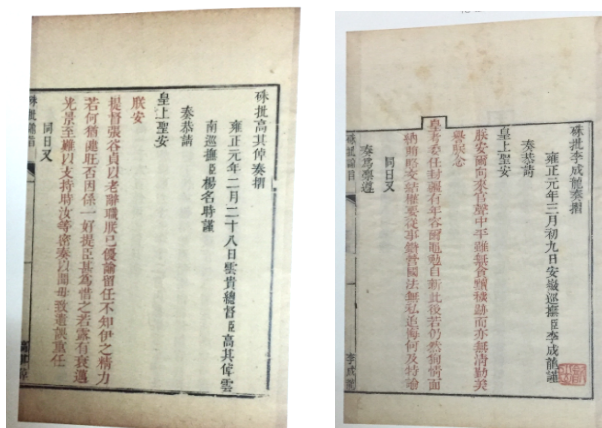 硃批高其倬奏摺
雍正元年二月二十八日雲貴總督臣高其倬雲
南巡撫臣楊名時謹
奏恭請
皇上聖安
朕安
提督張谷貞以老辭職朕已優諭留任不知伊之精力
若何猶健旺否因係一好提臣甚為惜之若露有衰邁
光景至難以支持時汝等密奏以聞毋致遺誤責任
同日又
硃批諭旨
硃批李成龍奏摺
雍正元年三月初九日安徽巡撫臣李成龍謹
奏恭請
皇上聖安
朕安爾向來官聲中平雖無貪黷穢跡而亦無清勤美
譽朕念
皇考委任封疆有年容爾黽勉自新此後若仍然徇情面
納賄賂交結權要從事 國法無私追悔何及特諭
同日又
奏為 遵
硃批諭旨
李成龍